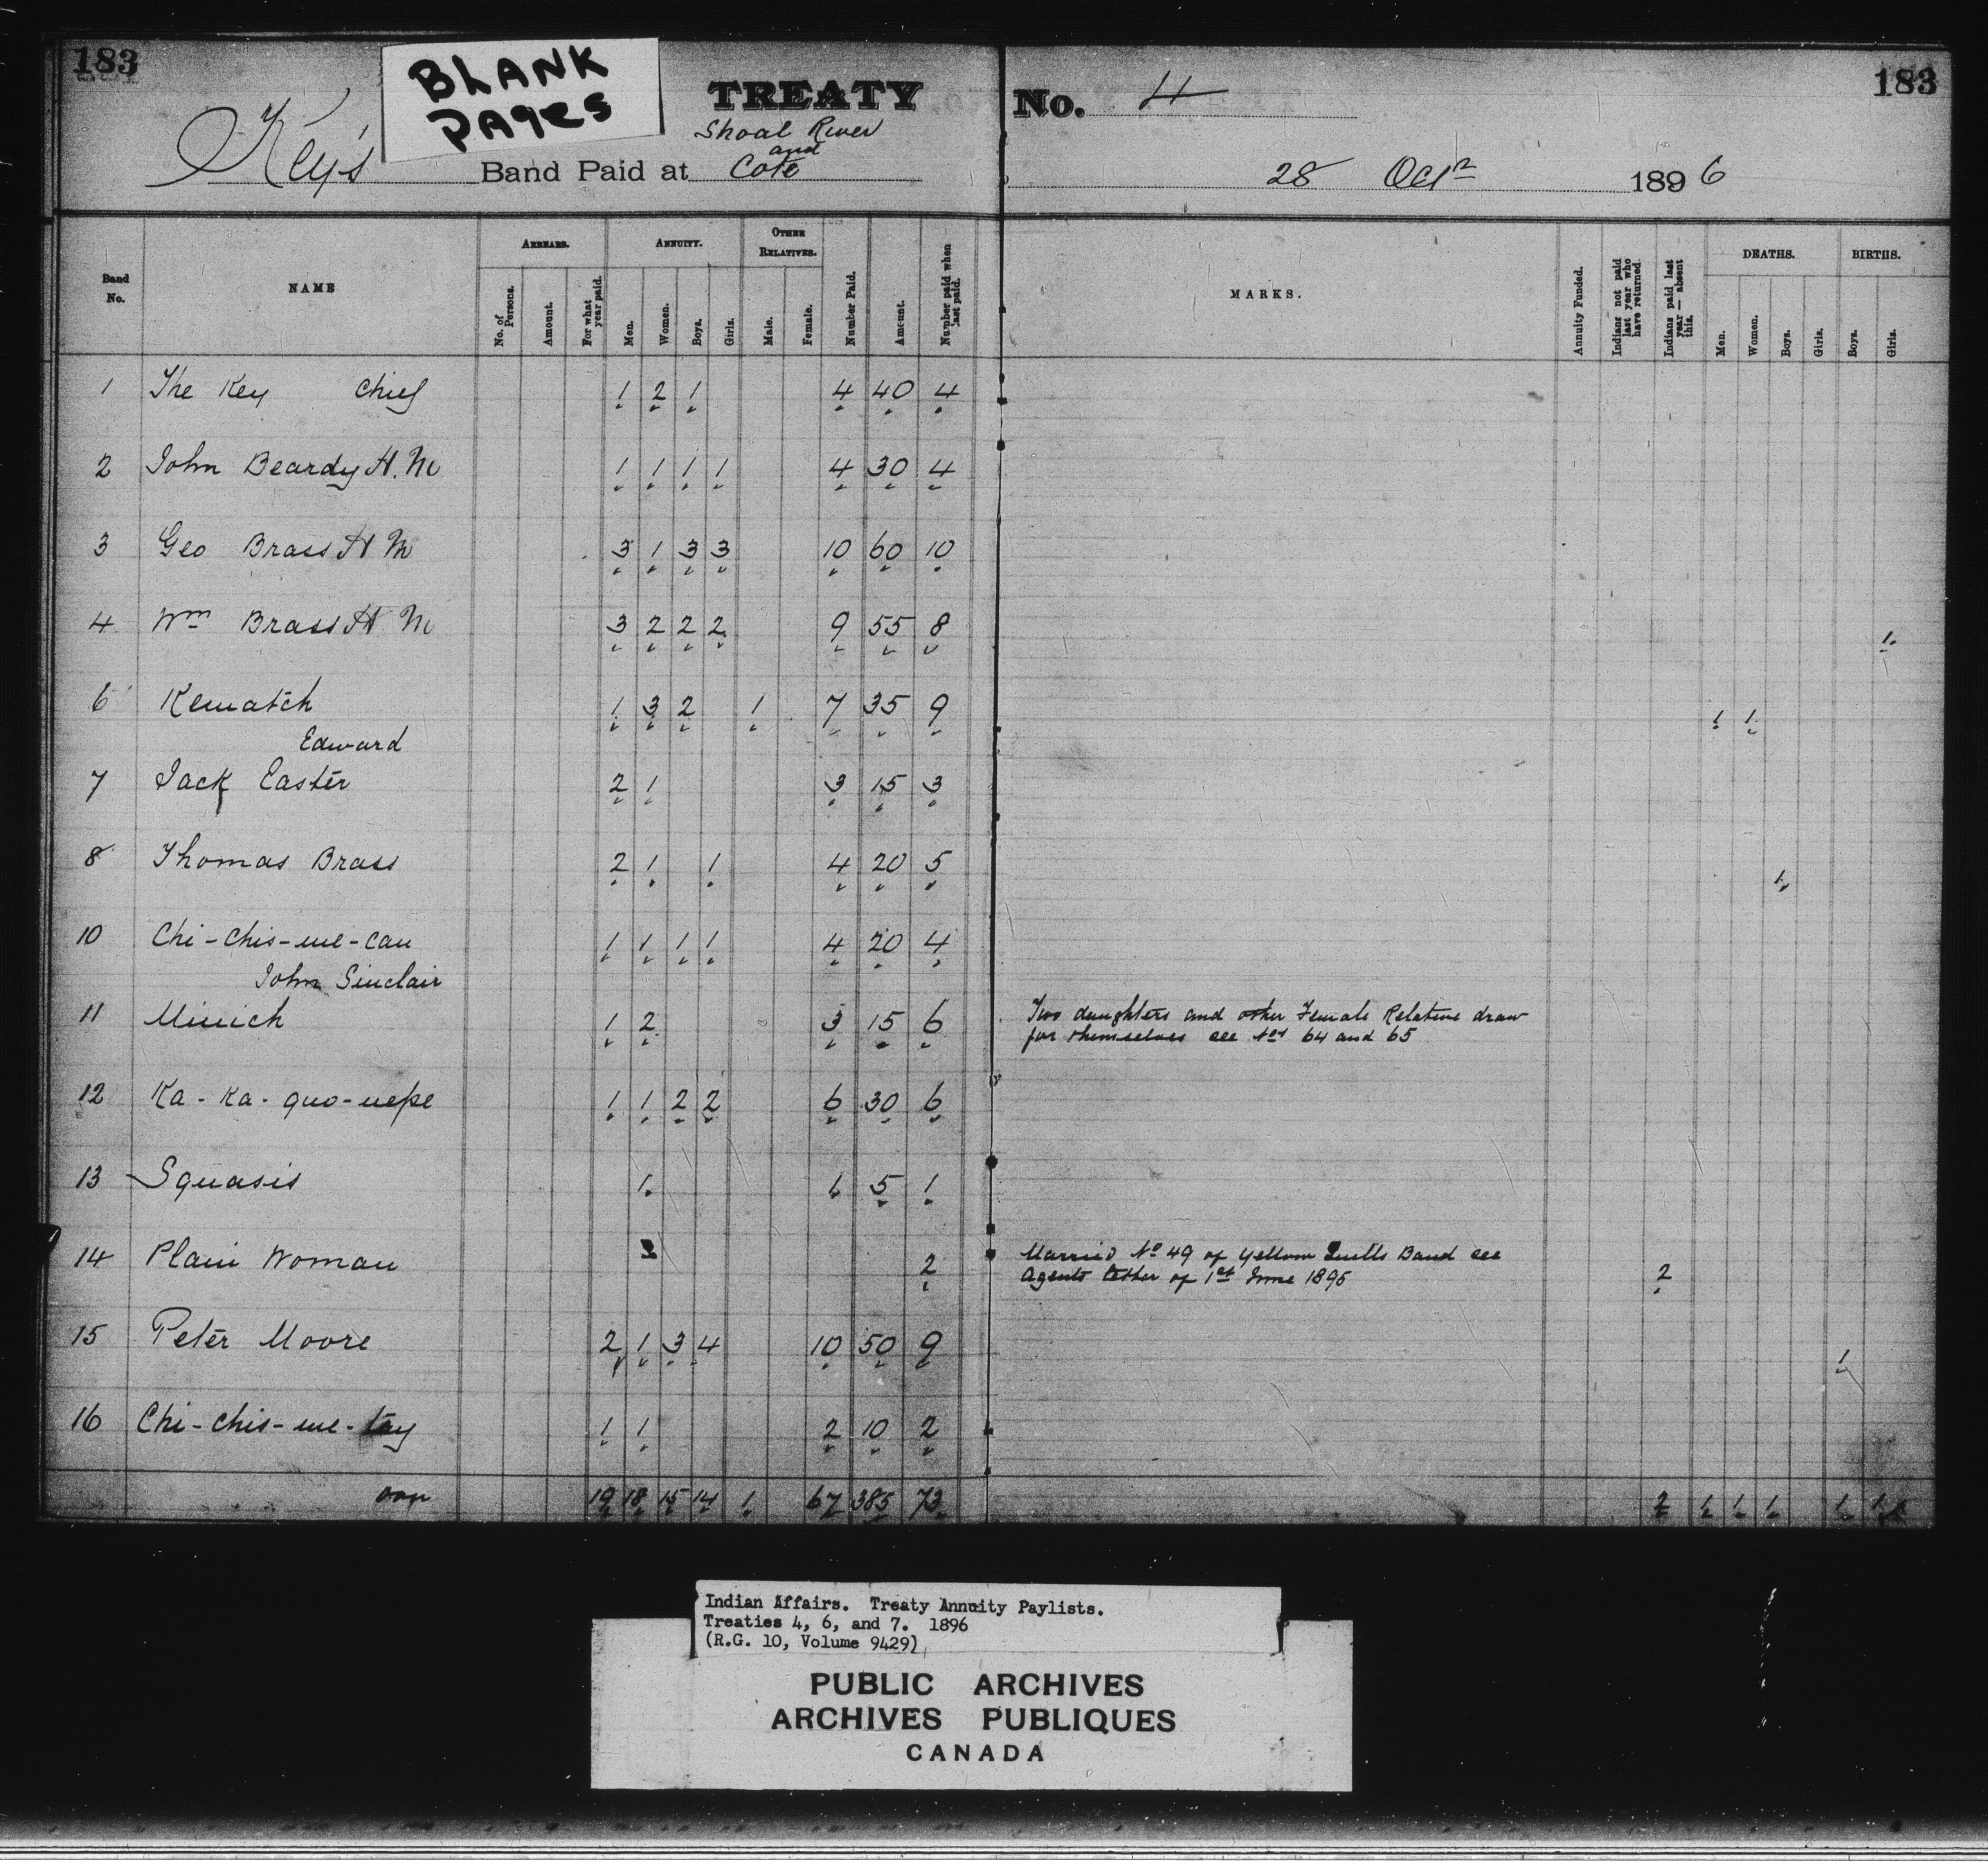 183
BLANK
PAGES
TREATY No. 4
183
Key's Band Paid at Shoal River and Cote 28 Octr 1896
Band No.
NAME
ARREARS.
No. of Persons.
Amount.
For what year paid.
ANNUITY.
Men.
Women.
Boys.
Girls.
OTHER RELATIVES.
Male.
Female.
Number Paid.
Amount.
Number paid when last paid.
MARKS.
Annuity Funded.
Indians not paid last year who have returned.
Indians paid last year — absent this.
DEATHS.
Men.
Women.
Boys.
Girls.
BIRTHS.
Boys.
Girls.
1 The Key Chief 1 2 1 4 40 4
2 John Beardy H. M 1 1 1 1 4 30 4
3 Geo Brass H M 3 1 3 3 10 60 10
4 Wm Brass H. M 3 2 2 2 9 55 8 1
6 Kewatch 1 3 2 1 7 35 9 1 1
Edward
7 Jack Easter 2 1 3 15 3
8 Thomas Brass 2 1 1 4 20 5 1
10 Chi-chis-we-can 1 1 1 1 4 20 4
John Sinclair
11 Minich 1 2 3 15 6 Two daughters and other Female Relative draw
for themselves see Nos 64 and 65
12 Ka-Ka-quo-nepe 1 1 2 2 6 30 6
13 Squasis 1 1 5 1
14 Plain Woman 2 Married No 49 of Yellow Quills Band see
Agents letter of 1st June 1896 2
15 Peter Moore 2 1 3 4 10 50 9 1
16 Chi-chis-we-tay 1 1 2 10 2
19 18 15 14 1 67 385 73 2 1 1 1 1 1
Indian Affairs. Treaty Annuity Paylists.
Treaties 4, 6, and 7. 1896
(R.G. 10, Volume 9429)
PUBLIC ARCHIVES
ARCHIVES PUBLIQUES
CANADA